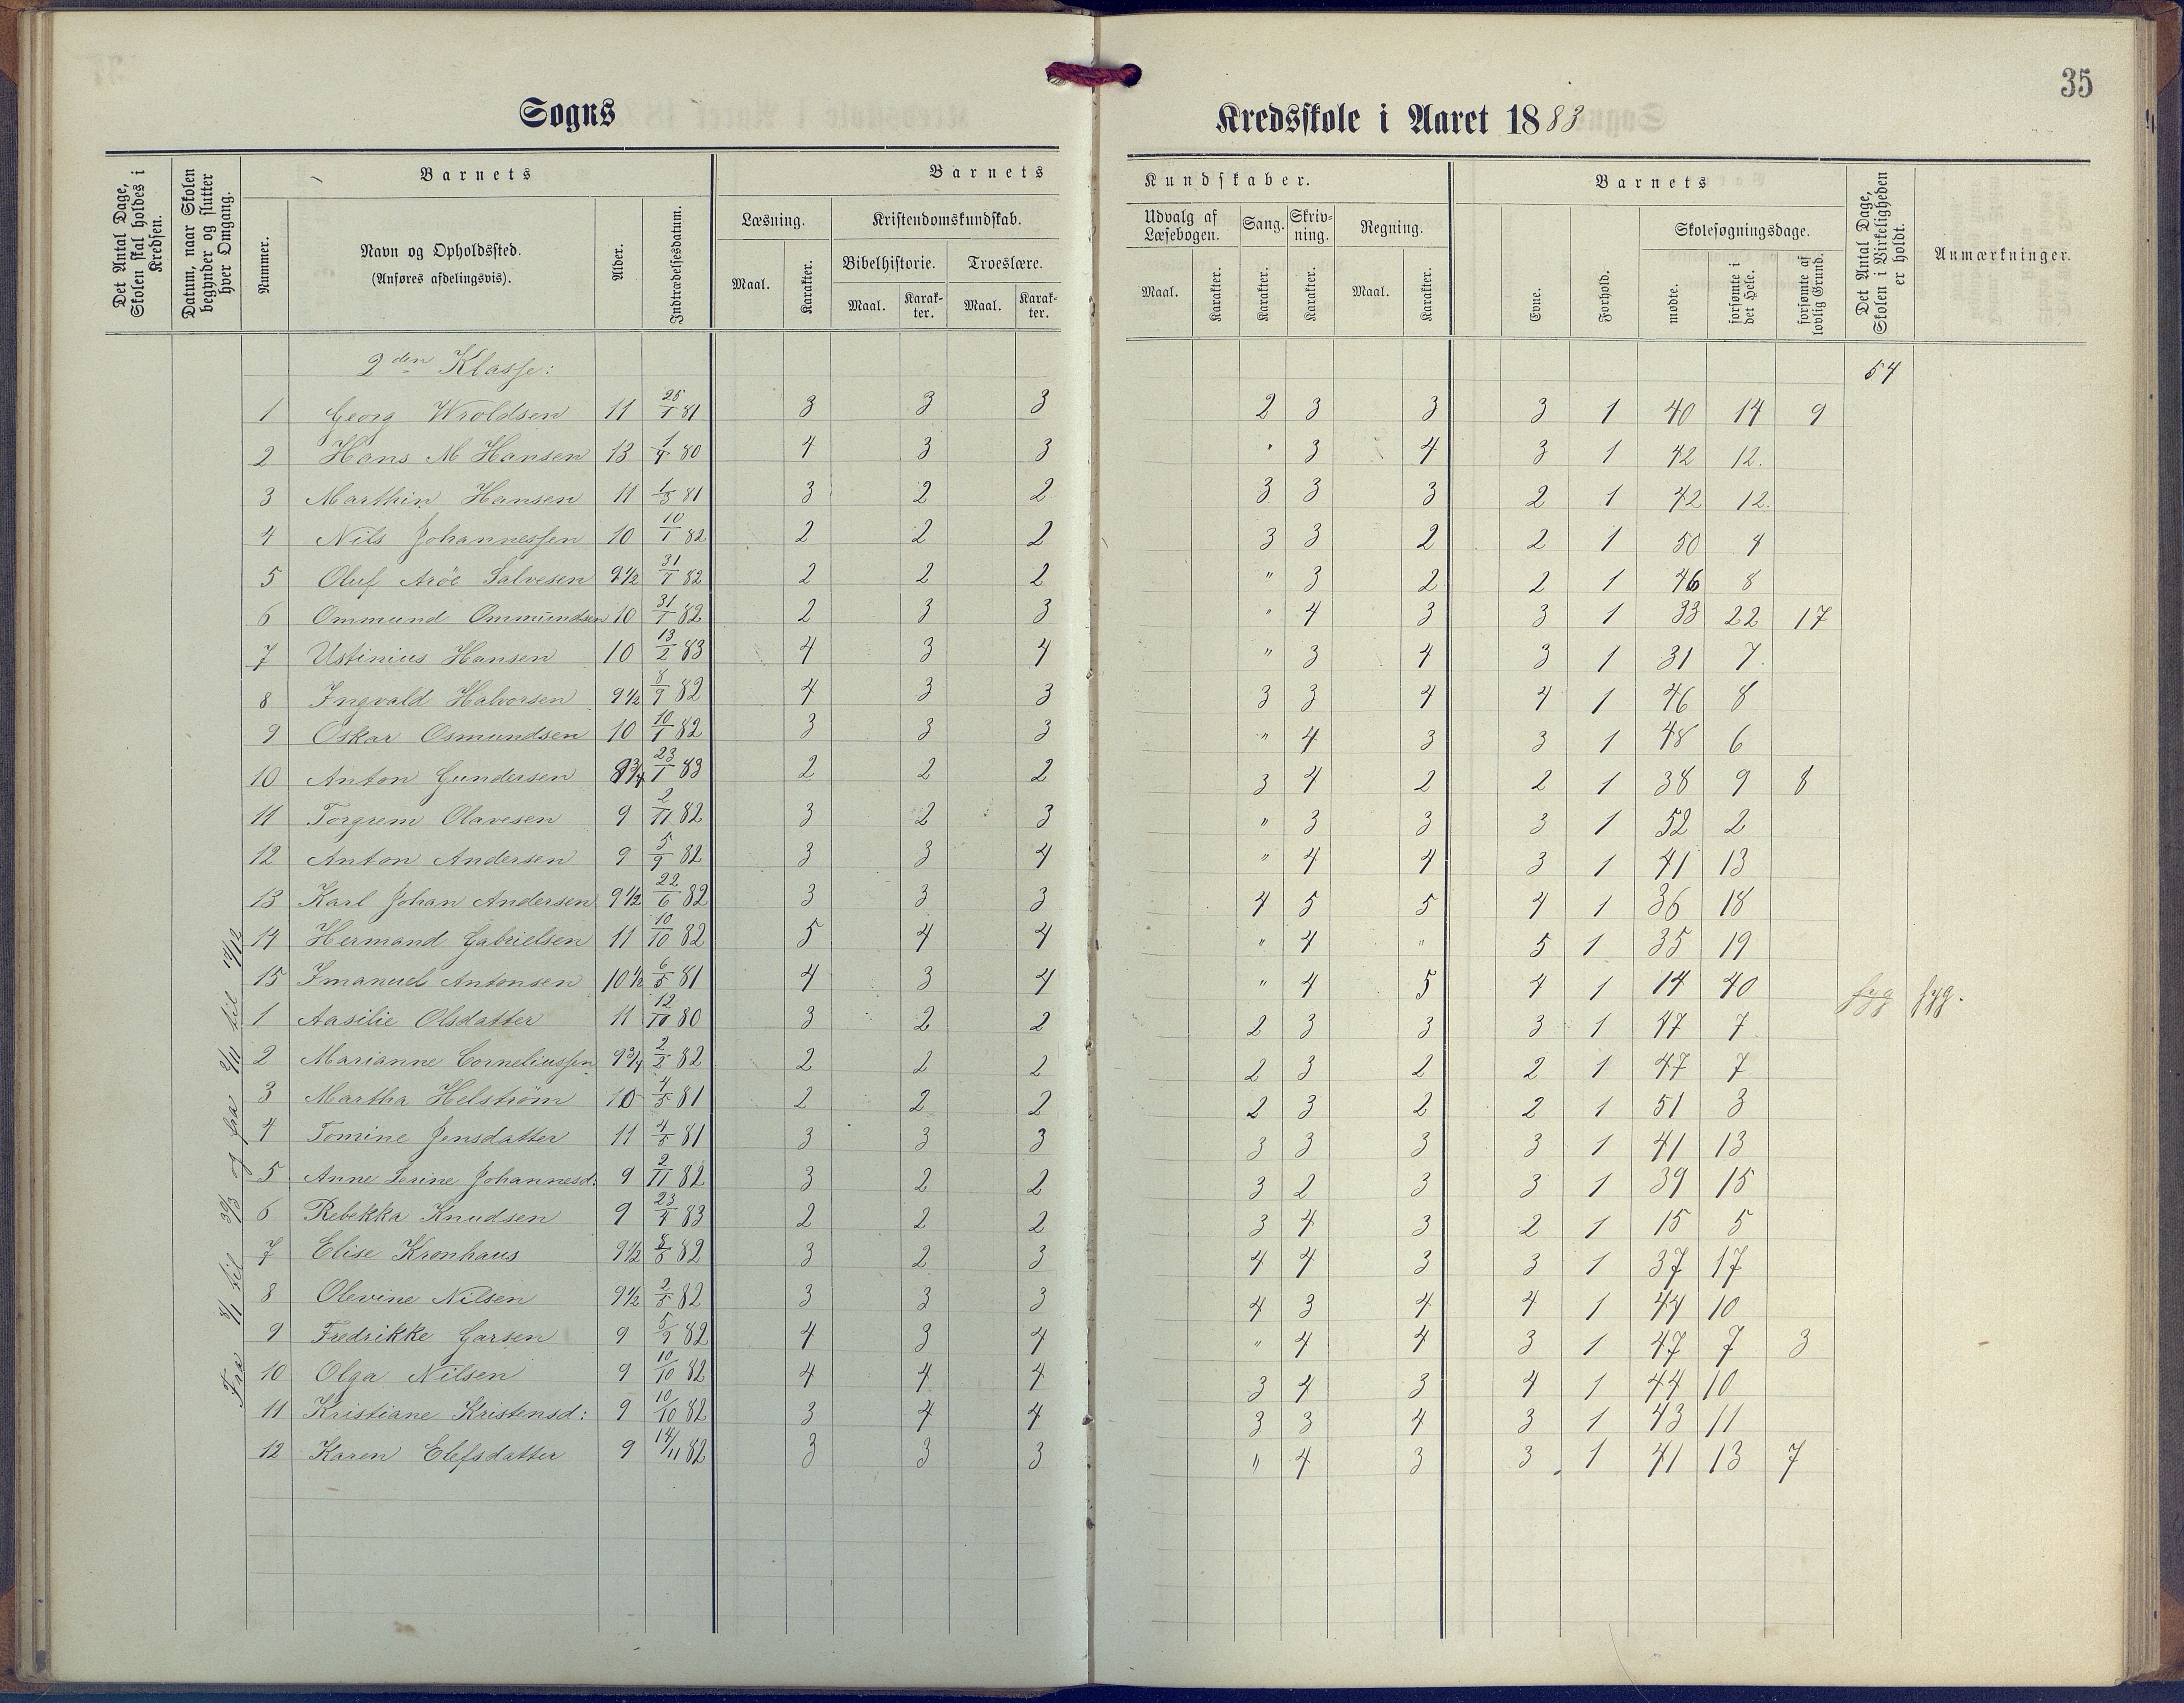 35
Sogns Kredsskole i Aaret 1883
Det Antal Dage, Skolen skal holdes i Kredsen.
Datum, naar Skolen begynder og slutter hver Omgang.
Barnets
Nummer.
Navn og Opholdssted.
(Anføres afdelingsvis).
Alder.
Indtrædelsesdatum.
Barnets Kundskaber.
Læsning.
Maal.
Karakter.
Kristendomskundskab.
Bibelhistorie.
Maal.
Karakter.
Troeslære.
Maal.
Karakter.
Udvalg af Læsebogen.
Maal.
Karakter.
Sang.
Karakter.
Skrivning.
Karakter.
Regning.
Maal.
Karakter.
Barnets
Evne.
Forhold.
Skolesøgningsdage.
mødte.
forsømte i det Hele.
forsømte af lovlig Grund.
Det Antal Dage, Skolen i Virkeligheden er holdt.
Anmærkninger.
Fra 8/1 til 30/3 og fra 2/11 til 14/12
2den Klasse: 54
1 Georg Wroldsen 11 25/1 81 3 3 3 2 3 3 3 1 40 14 9
2 Hans M Hansen 13 1/4 80 4 3 3 " 3 4 3 1 42 12.
3 Marthin Hansen 11 1/3 81 3 2 2 3 3 3 2 1 42 12.
4 Nils Johannessen 10 10/1 82 2 2 2 3 3 2 2 1 50 4
5 Oluf Aröe Salvesen 9 1/2 31/1 82 2 2 2 " 3 2 2 1 46 8
6 Ommund Ommundsen 10 31/1 82 2 3 3 " 4 3 3 1 33 22 17
7 Ustinius Hansen 10 13/2 83 4 3 4 " 3 4 3 1 31 7.
8 Ingvald Halvorsen 9 1/2 8/9 82 4 3 3 3 3 4 4 1 46 8
9 Oskar Osmundsen 10 10/1 82 3 3 3 " 4 3 3 1 48 6
10 Anton Gundersen 8 3/4 23/1 83 2 2 2 3 4 2 2 1 38 9 8
11 Torgrem Olavesen 9 2/11 82 3 2 3 " 3 3 3 1 52 2
12 Anton Andersen 9 5/9 82 3 3 4 " 4 4 3 1 41 13
13 Karl Johan Andersen 9 1/2 22/6 82 3 3 3 4 5 5 4 1 36 18
14 Hermand Gabrielsen 11 10/10 82 5 4 4 " 4 " 5 1 35 19
15 Imanuel Antonsen 10 1/2 6/5 81 4 3 4 " 4 5 4 1 14 40 syg syg.
1 Aasilie Olsdatter 11 12/10 80 3 2 2 2 3 3 3 1 47 7
2 Marianne Corneliussen 9 3/4 2/2 82 2 2 2 2 3 2 2 1 47 7
3 Martha Helström 10 4/5 81 2 2 2 2 3 2 2 1 51 3
4 Tomine Jensdatter 11 4/5 81 3 3 3 3 3 3 3 1 41 13
5 Anne Serine Johannesd: 9 2/11 82 3 2 2 3 2 3 3 1 39 15
6 Rebekka Knudsen 9 23/4 83 2 2 2 3 4 3 2 1 15 5
7 Elise Kronhaus 9 1/2 8/5 82 3 2 3 4 4 3 3 1 37 17
8 Olevine Nilsen 9 1/2 2/5 82 3 3 3 4 3 4 4 1 44 10
9 Fredrikke Garsen 9 5/9 82 4 3 4 " 4 4 3 1 47 7 3
10 Olga Nilsen 9 10/10 82 4 4 4 3 4 3 4 1 44 10
11 Kristiane Kristensd: 9 10/10 82 3 4 4 3 3 4 3 1 43 11
12 Karen Elefsdatter 9 14/11 82 3 3 3 " 4 3 3 1 41 13 7